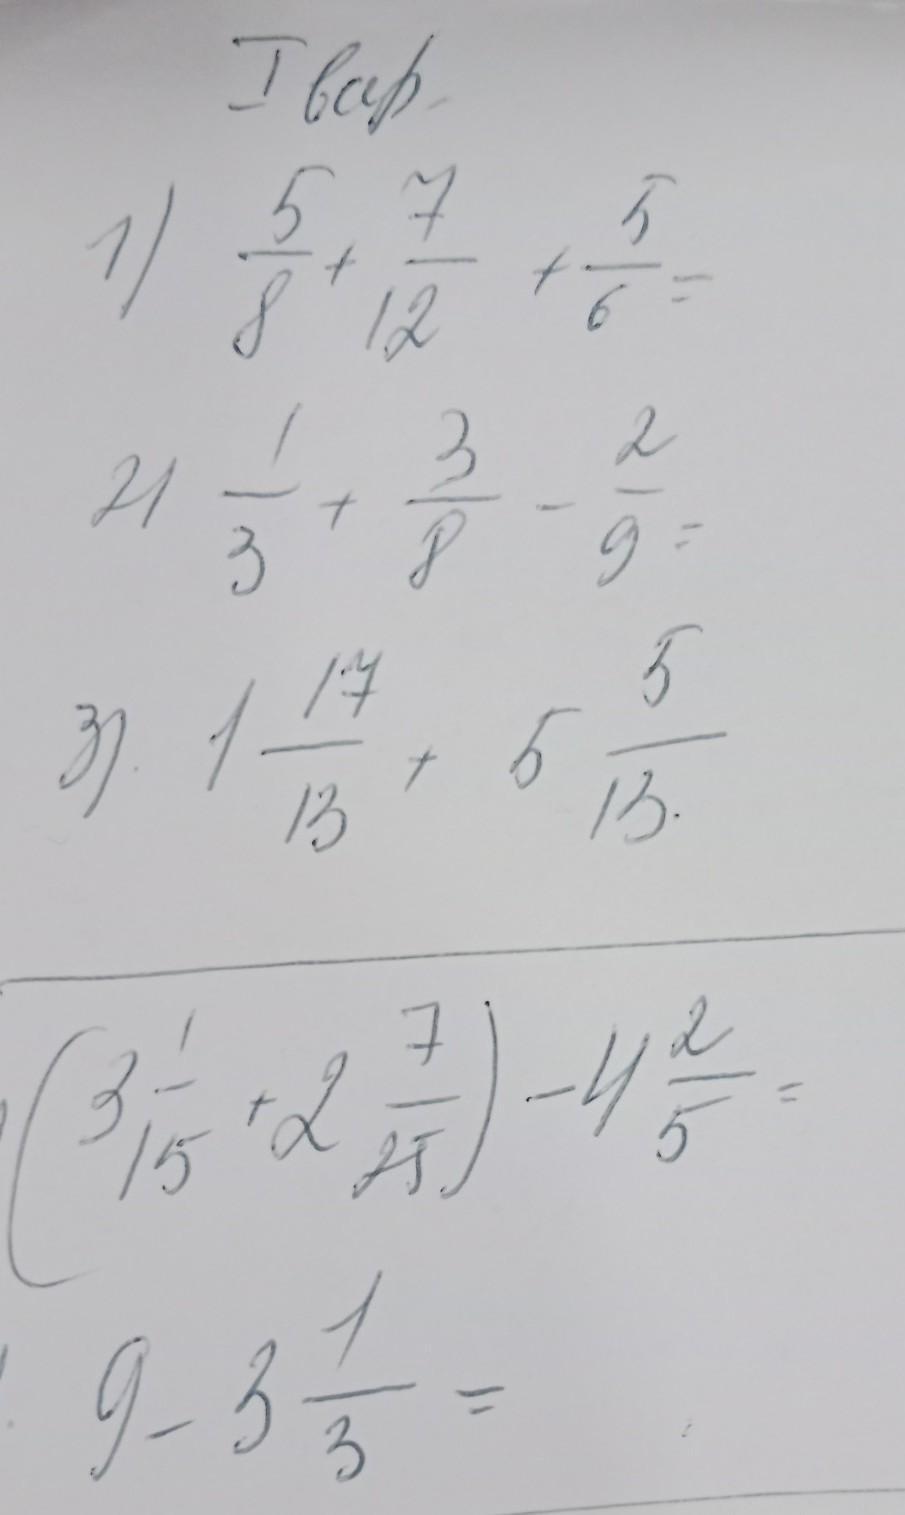 I вар.
1) 5/8 + 7/12 + 5/6 =
2) 1/3 + 3/8 - 2/9 =
3). 1 17/13 + 5 5/13.
(3 1/15 + 2 7/25) - 4 2/5 =
9 - 3 1/3 =